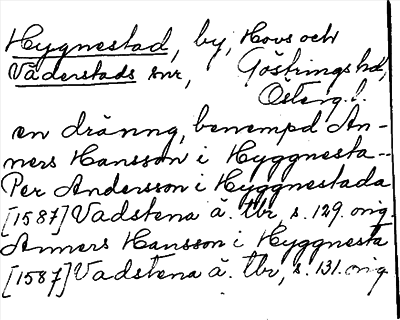 Hygnestad, by, Hovs och
Väderstads snr, Göstrings hd,
Österg. l.
en dränng, benempd An-
ners Hansson i Hyggnesta--
Per Andersson i Hyggnestada
[1587] Vadstena ä. tbr, s. 129. orig.
Anners Hansson i Hyggnesta
[1587] Vadstena ä. tbr, s. 131. orig